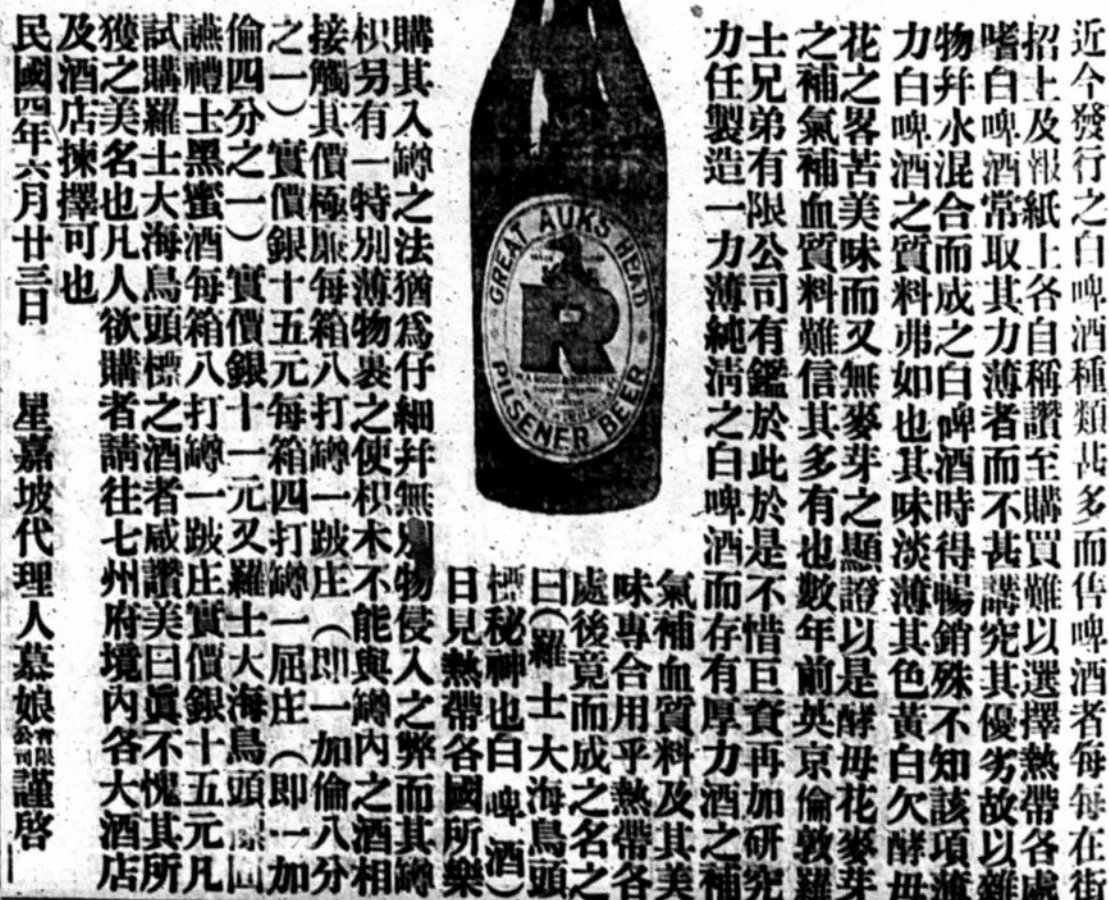 近今發行之白啤酒種類甚多而售啤酒者每每在街
招上及報紙上各自稱讚至購買難以選擇熱帶各處
嗜白啤酒常取其力薄者而不甚講究其優劣故以雜
物幷水混合而成之白啤酒時得暢銷殊不知該項薄
力白啤酒之質料弗如也其味淡薄其色黃白欠酵母
花之畧苦美味而又無麥芽之顯證以是酵母花麥芽
之補氣補血質料難信其多有也數年前英京倫敦羅
士兄弟有限公司有鑑於此於是不惜巨資再加研究
力任製造一力薄純淸之白啤酒而存有厚力酒之補
氣補血質料及其美
味專合用乎熱帶各
處後竟而成之名之
曰（羅士大海鳥頭
標秘神也白啤酒）
日見熱帶各國所樂
購其入罇之法猶爲仔細幷無別物侵入之弊而其罇
枳另有一特別薄物裹之使枳木不能與罇內之酒相
接觸其價極廉每箱八打罇一跛庄（即一加倫八分
之一）實價銀十五元每箱四打罇一屈庄（即一加
倫四分之一）實價銀十一元又羅士大海鳥頭標
讌禮士黑蜜酒每箱八打罇一跛庄實價銀十五元凡
試購羅士大海鳥頭標之酒者咸讚美曰眞不愧其所
獲之美名也凡人欲購者請往七州府境內各大酒店
及酒店揀擇可也
民國四年六月廿三日 星嘉坡代理人慕娘有限公司謹啓
GREAT AUK'S HEAD
R
PILSENER BEER